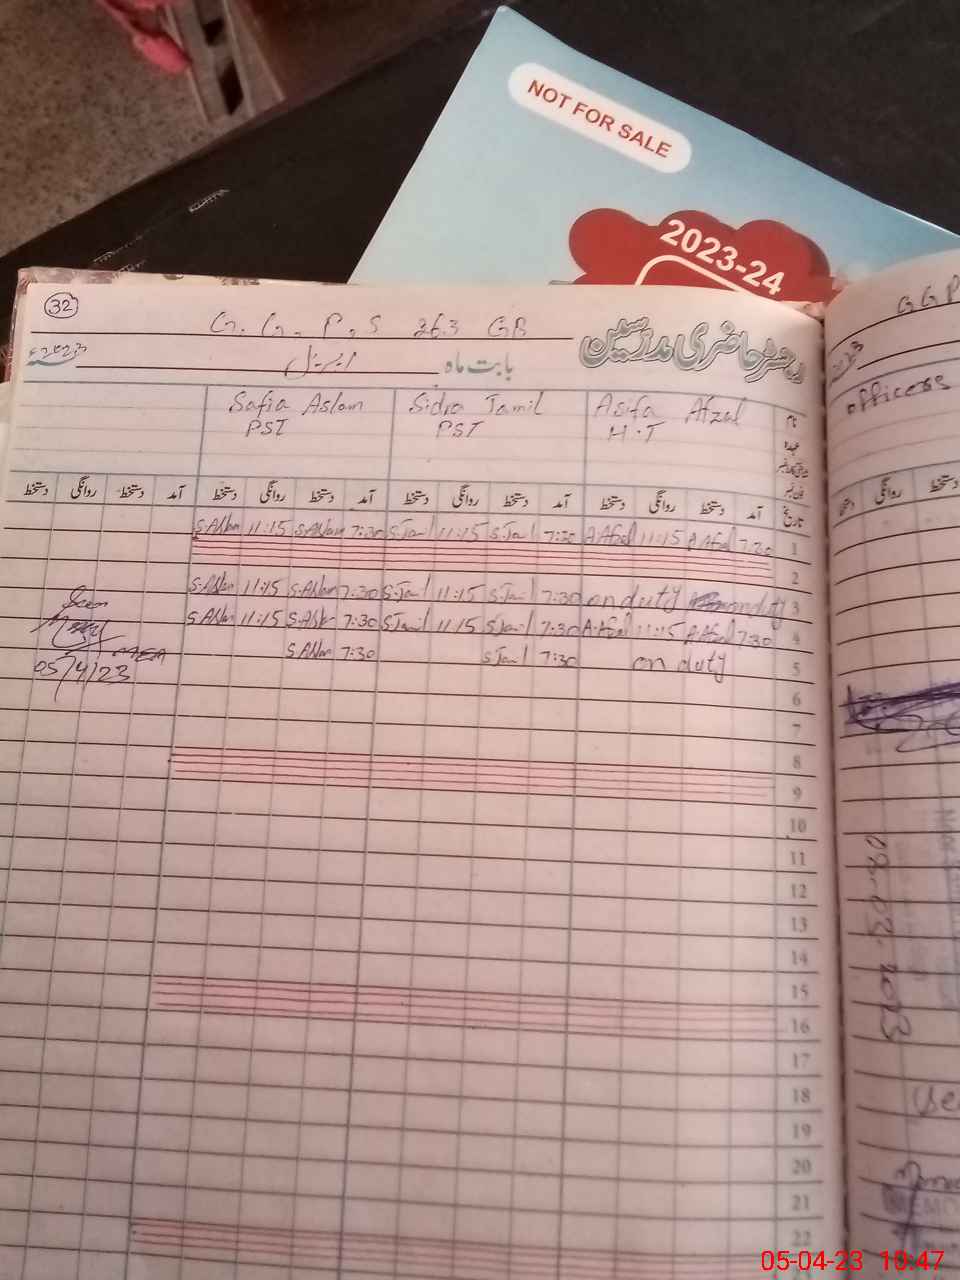 NOT FOR SALE
2023-24
32
G. G. P. S 363 GB
رجسٹر حاضری مدرسین
2023
بابت ماہ اپریل
Safia Aslam Sidra Jamil Asifa Afzal نام
PST PST H.T عہدہ
دستخط روانگی دستخط آمد دستخط روانگی دستخط آمد دستخط روانگی دستخط آمد تاریخ
S.Aslam 11:15 S.Aslam 7:30 S.Jamil 11:15 S.Jamil 7:30 A.Afzal 11:15 A.Afzal 7:30 1
2
S.Aslam 11:15 S.Aslam 7:30 S.Jamil 11:15 S.Jamil 7:30 on duty on duty 3
S.Aslam 11:15 S.Aslam 7:30 S.Jamil 11:15 S.Jamil 7:30 A.Afzal 11:15 A.Afzal 7:30 4
S.Aslam 7:30 S.Jamil 7:30 on duty 5
Seen
MEA
05/4/23
6
7
8
9
10
11
12
13
14
15
16
17
18
19
20
21
22
G G P
2023
officers
روانگی دستخط
05-04-23 10:47